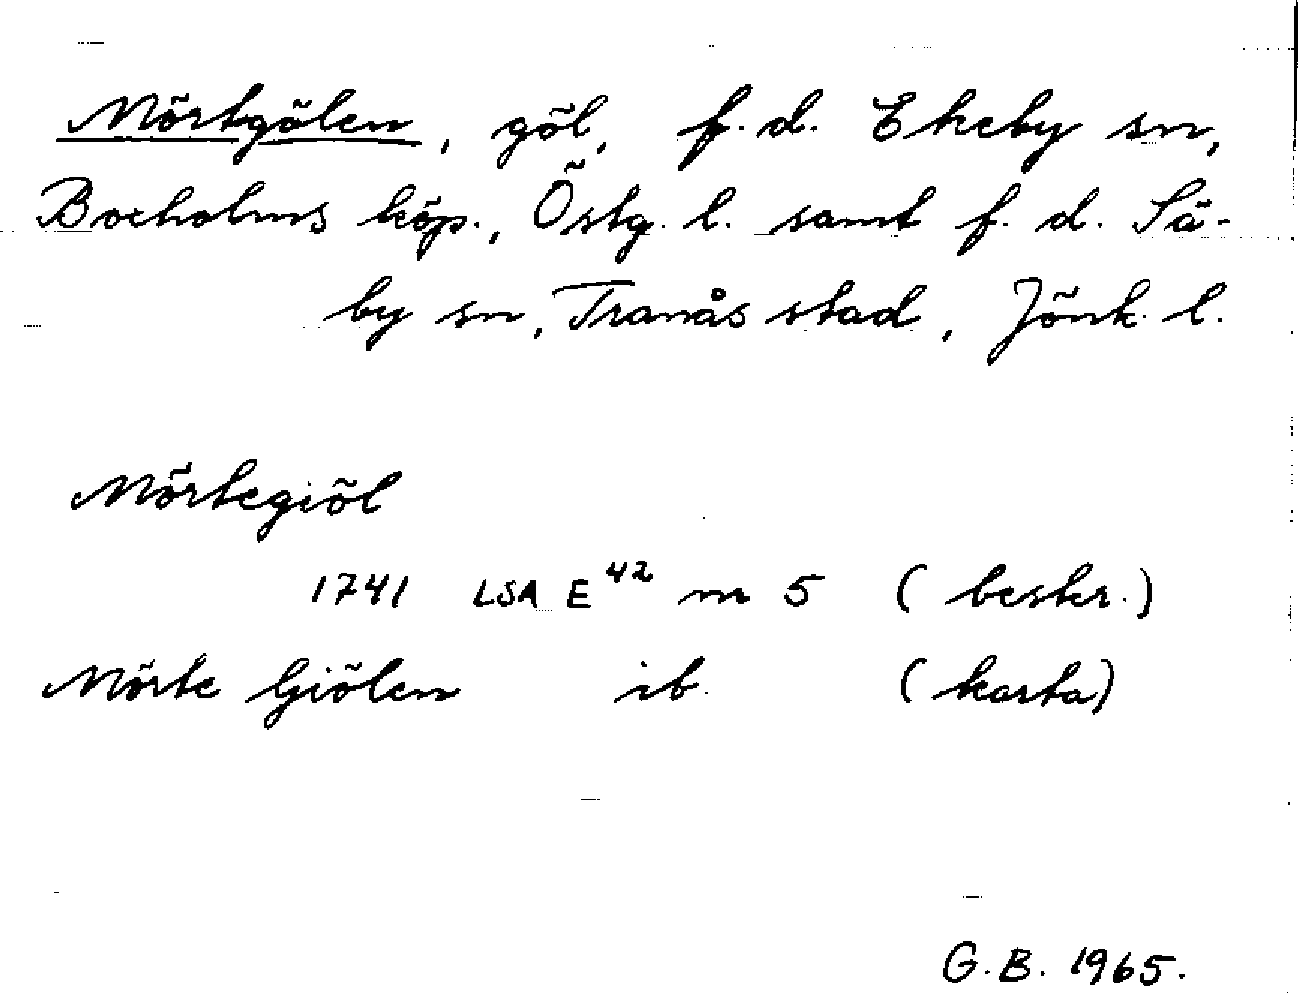 Mörtgölen, göl, f.d. Ekeby sn,
Boxholms köp., Östg. l. samt f. d. Sä-
by sn, Tranås stad, Jönk. l.
Mörtegiöl
1741 LSA E 42 nr 5 (beskr.)
Mörte Giölen ib. (karta)
G.B. 1965.